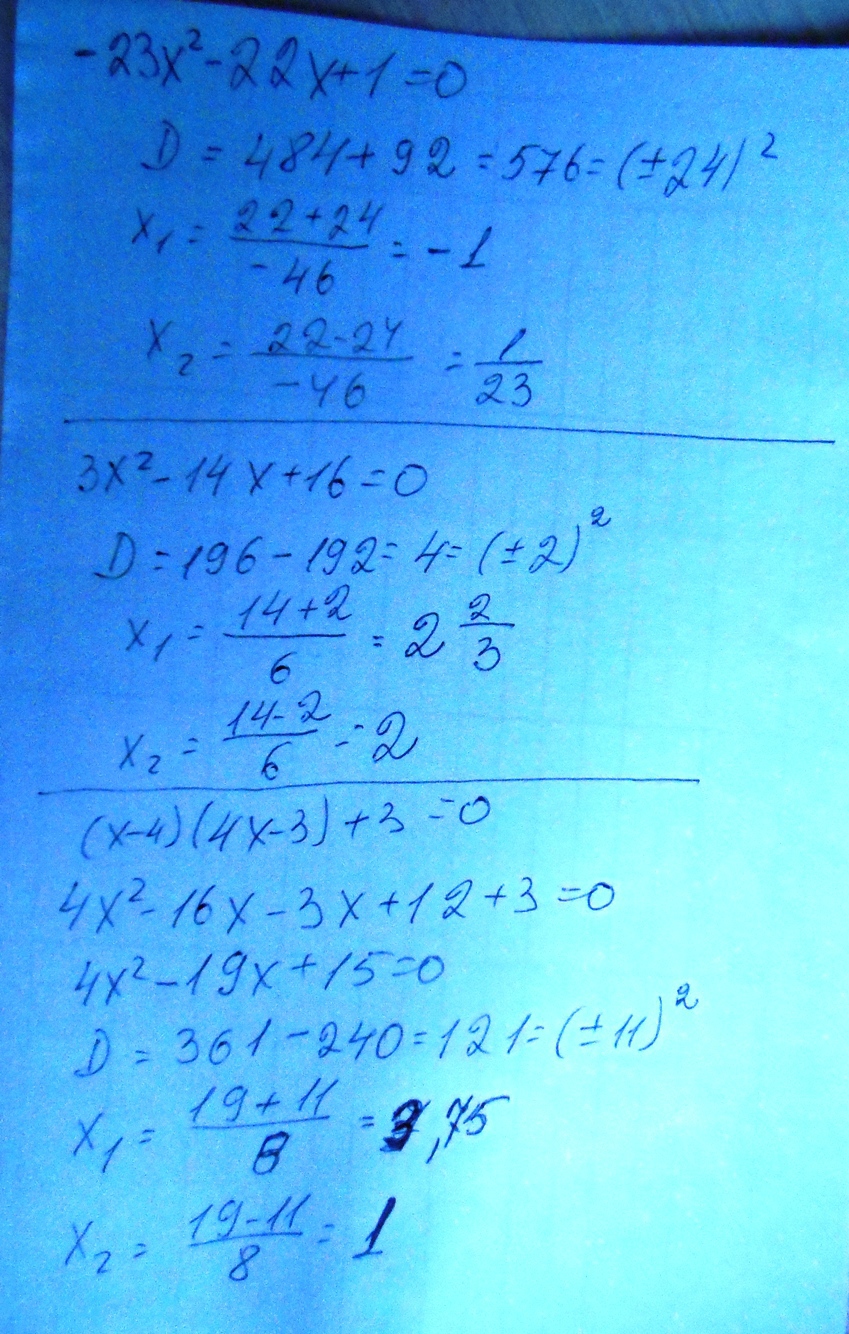 -23x²-22x+1=0
D = 484+92=576=(±24)²
x₁ = \frac{22+24}{-46} = -1
x₂ = \frac{22-24}{-46} = \frac{1}{23}
3x²-14x+16=0
D=196-192=4=(±2)²
x₁ = \frac{14+2}{6} = 2\frac{2}{3}
x₂ = \frac{14-2}{6} = 2
(x-4)(4x-3)+3=0
4x²-16x-3x+12+3=0
4x²-19x+15=0
D = 361-240=121=(±11)²
x₁ = \frac{19+11}{8} = 3,75
x₂ = \frac{19-11}{8} = 1